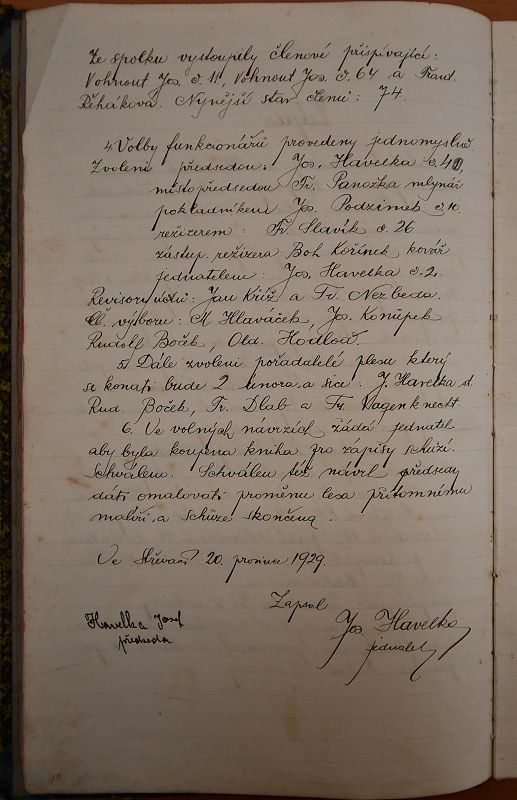 Ze spolku vystoupily členové přispívající:
Vohnout Jos. č. 11, Vohnout Jos. č. 64 a Frant.
Řeháková. Nynější stav členů: 74
4. Volby funkcionářů provedeny jednomyslně
Zvoleni předsedou: Jos. Havelka č. 40,
místopředsedou Fr. Panoška mlynář
pokladníkem Jos. Podzimek č. 10.
režizerem: Fr. Slavík č. 26
zástup. režizera Boh. Kořínek kovář
jednatelem: Jos. Havelka č. 2.
Revisoři účtů: Jan Kříž a Fr. Nezbeda.
Čl. výboru: M Hlaváček, Jos. Konůpek
Rudolf Boček, Old.
5) Dále zvoleni pořadatelé plesu který
se konati bude 2 února a sice: J. Havelka st.
Rud. Boček, Fr. Dlab a Fr. Vagenknecht.
6. Ve volných návrzích žádá jednatel
aby byla koupena kniha pro zápisy schůzí.
Schváleno. Schválen též návrh předsedy
dáti omalovati proměnu lesa přítomnému
malíři a schůze skončena.
Ve 20. prosince 1929.
Zapsal
Havelka Josef
předseda
Jos. Havelka
jednatel